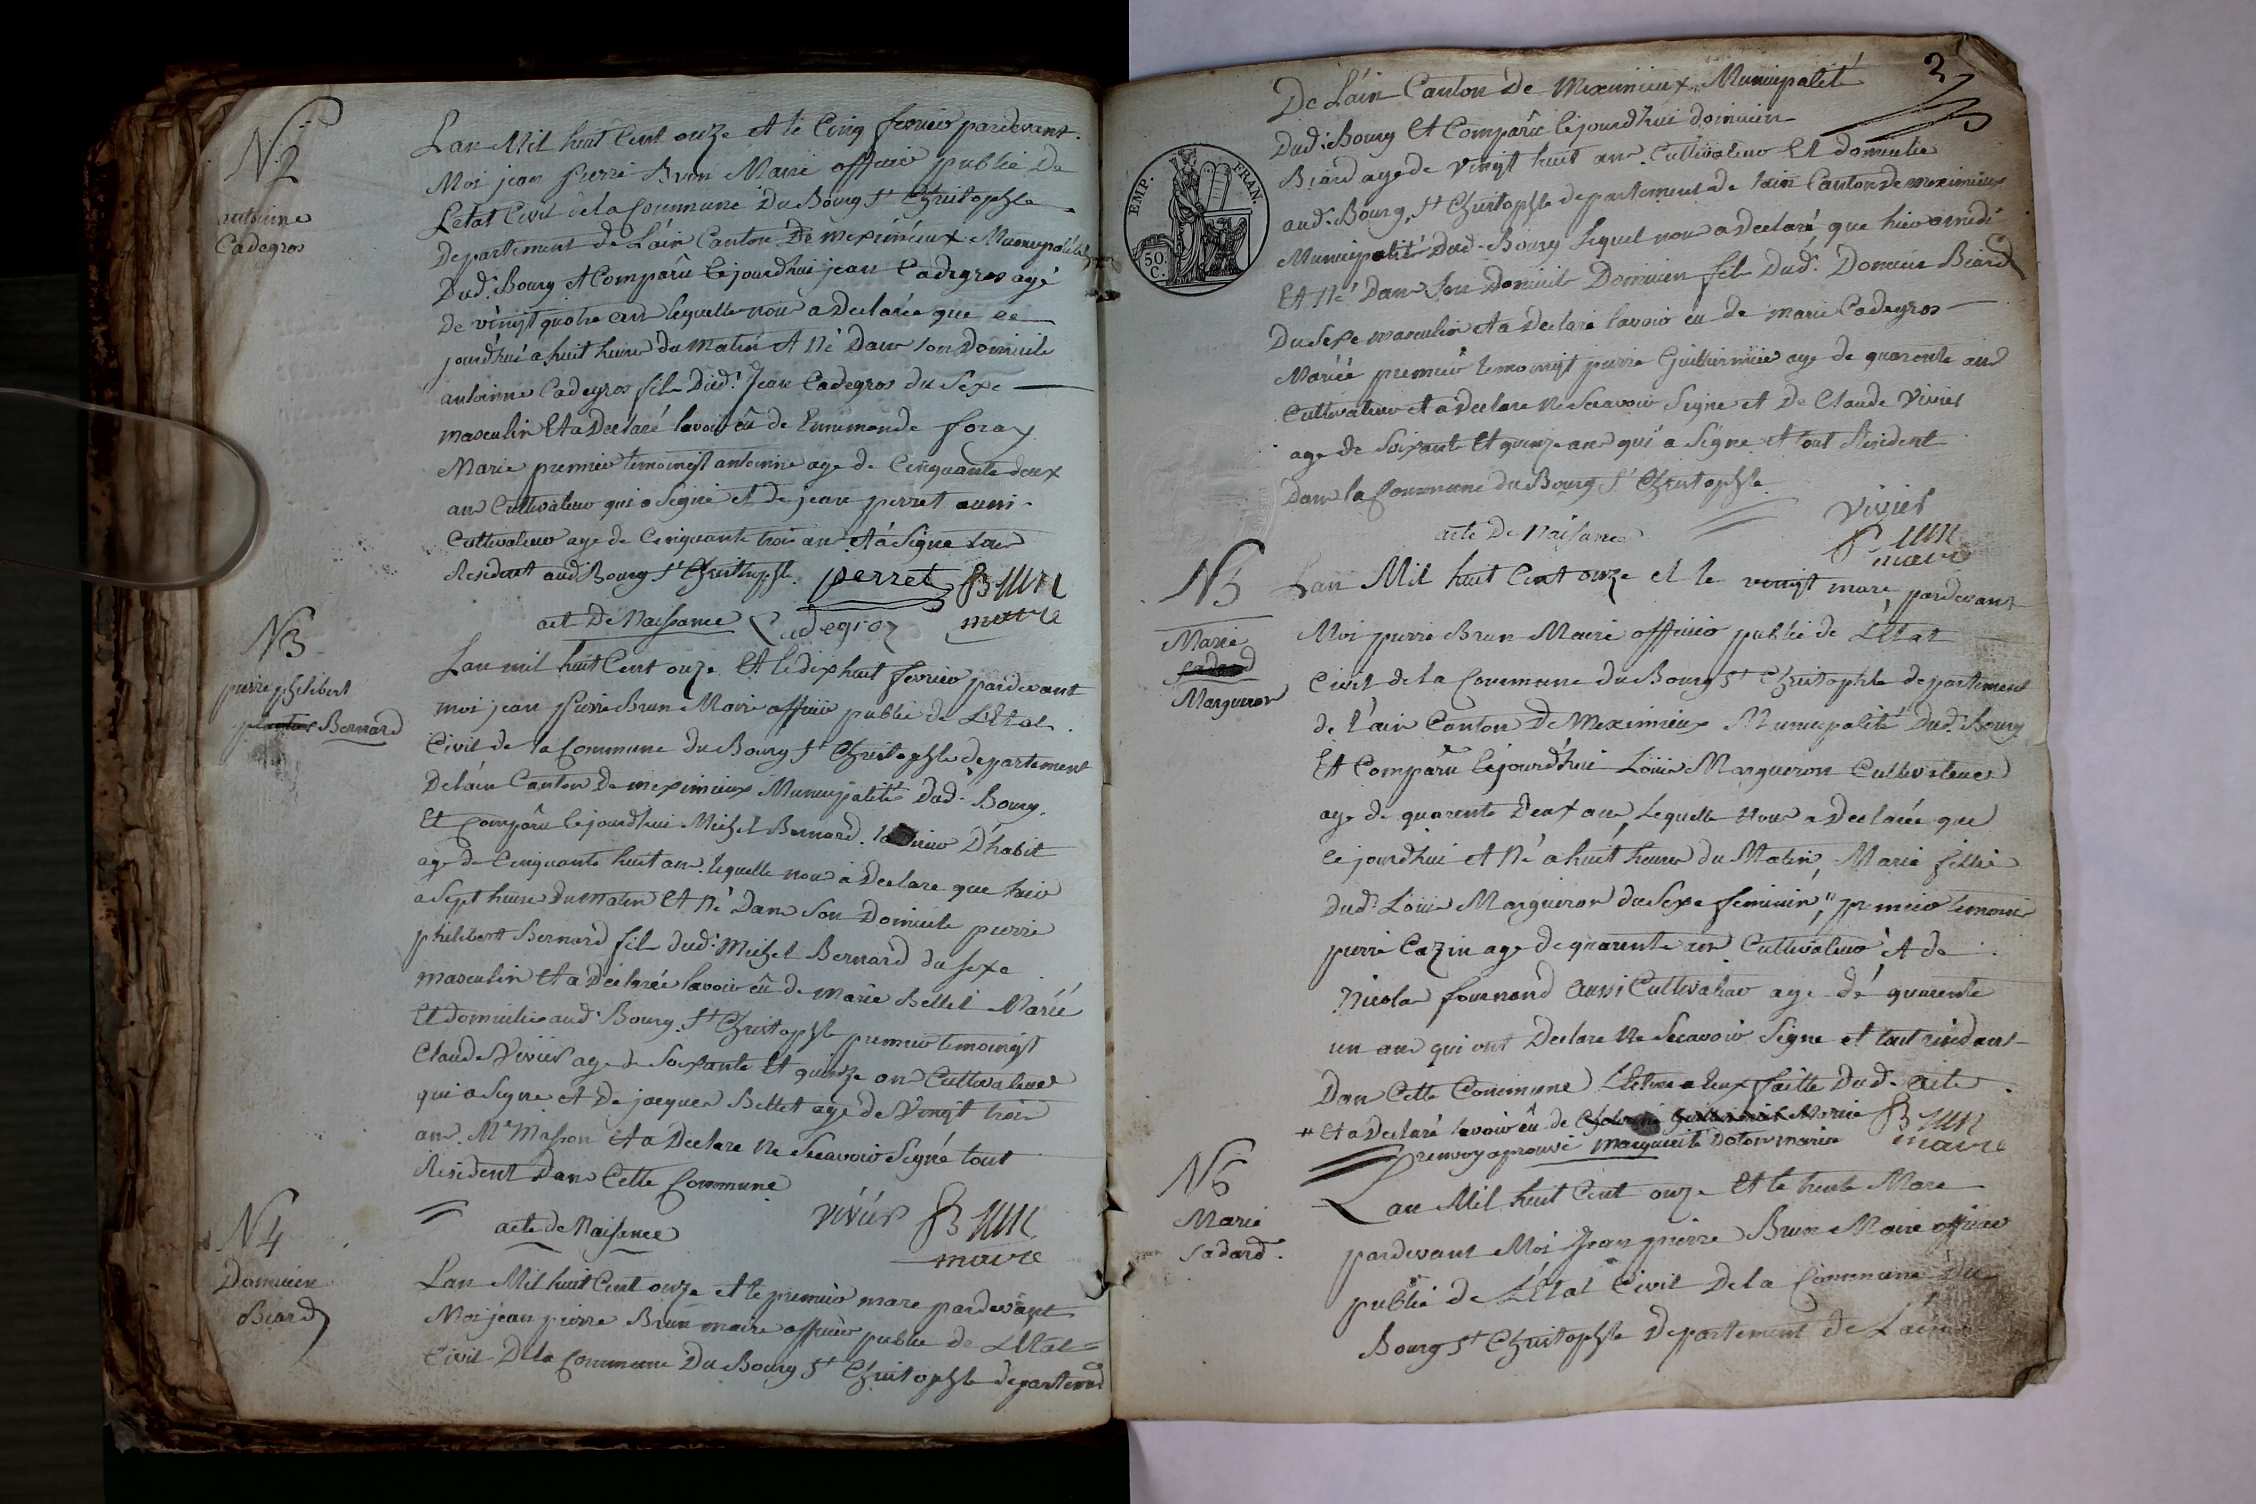 N 2
antoinne
Cadegros
Lan Mil huit Cent onze et le Cinq fevrier pardevant
Moi jean pierre Brun Maire officier public De
Letat Civil de la Commune Du Bourg St Christophle
Departement de Lain Canton De meximieux Municipalité
Dud. Bourg et Comparû Cejourdhui jean Cadegros agé
de vingt quatre ans lequelle nous a declarée que ce
jourdhui a huit heure du matin et Né Dans son Domicile
antoinne Cadegros fils Dud. Jean Cadegros du Sexe
masculin et a Declaré lavoir eû de Ennemonde foray
Marie premier temoingt antoinne age de Cinquante deux
ans Cultivateur qui a Signé et de jean perret aussi
Cultivateur age de Cinquante trois ans et a Signe tous
Resident aud Bourg St Christophle perret Brun
maire
act De Naissance Cadegros
N 3
pierre philibert
Bernard
Lan mil huit Cent onze et le dix huit fevrier pardevant
moi jean pierre Brun Maire officier public de LEtat
Civil de la Commune du Bourg St Christophle departement
De lain Canton De meximieux Municipalité Dud. Bourg
Et Comparu Cejourdhui Michel Bernard D'habit
age de Cinquante huit ans lequelle nous a declare que hier
a Sept heure Du matin Et Né Dans Son Domicile pierre
philibert Bernard fils dud. Michel Bernard du sexe
masculin Et a Declarée lavoir eû de Marie Bellet Mariée
Et domicilié aud. Bourg St Christophle premier temoingt
Claude Vivier age de Soixante Et quinze ans Cultivateur
qui a Signe et De jacques Bellet age de Vingt trois
ans Me Masson et a Declare Ne Scavoir Signé tout
Resident dans Cette Commune
Vivier Brun
maire
acte de Naissance
N 4
Dominien
Biard
Lan Mil huit Cent onze et le premier mars pardevant
Moi jean pierre Brun maire officier public de LEtat
Civil De la Commune Du Bourg St Christophle departement
2
EMP. FRAN.
50. C.
De Lain Canton De Meximieux Municipalité
Dud. Bourg Et Comparû Cejourdhui dominien
Biard age de vingt huit ans Cultivateur Et domicilie
aud. Bourg St Christophle departement de lain Canton de meximieux
Municipalité Dud. Bourg lequel nous a Declaré que hier a midi
Et Né Dans Son Domicile Dominien fils Dud. Biard
Du Sexe masculin et a Declaré lavoir eu de marie Cadegros
Mariée premier temoingt pierre age de quarente ans
Cultivateur et a Declare Ne Scavoir Signe et De Claude Vivier
age de Soixante Et quinze ans qui a Signe et tout Resident
Dans la Commune du Bourg St Christophle
Vivier
Brun
maire
acte De Naissance
N 5
Marie
Margueron
Lan Mil huit Cent onze et le vingt mars pardevant
Moi pierre Brun Maire officier public de LEtat
Civil de la Commune du Bourg St Christophle departement
de l'ain Canton De Meximieux Municipalité Dud. Bourg
Et Comparû Cejourdhui Loüis Margueron Cultivateur
age de quarente Deux ans Lequelle Nous a Declarée que
Ce jourdhui et Né a huit heure du Matin, Marie fillie
Dud. Loüis Margueron du Sexe feminin, premier temoin
pierre Cazin age de quarente ans Cultivateur et de
Nicolas fournand aussi Cultivateur age de quarente
un ans qui ont Declare Ne Scavoir Signe et tout residant
Dans Cette Commune Lecture a Eux faitte Dud. acte
Et a Declaré lavoir eû de Marie Brun
renvoy aprouvé marguerite maire
N 6
Marie
Sadard
Lan Mil huit Cent onze Et le trente Mars
pardevant Moi Jean pierre Brun Maire officier
public de LEtat Civil De la Commune Du
Bourg St Christophle Departement de Lain